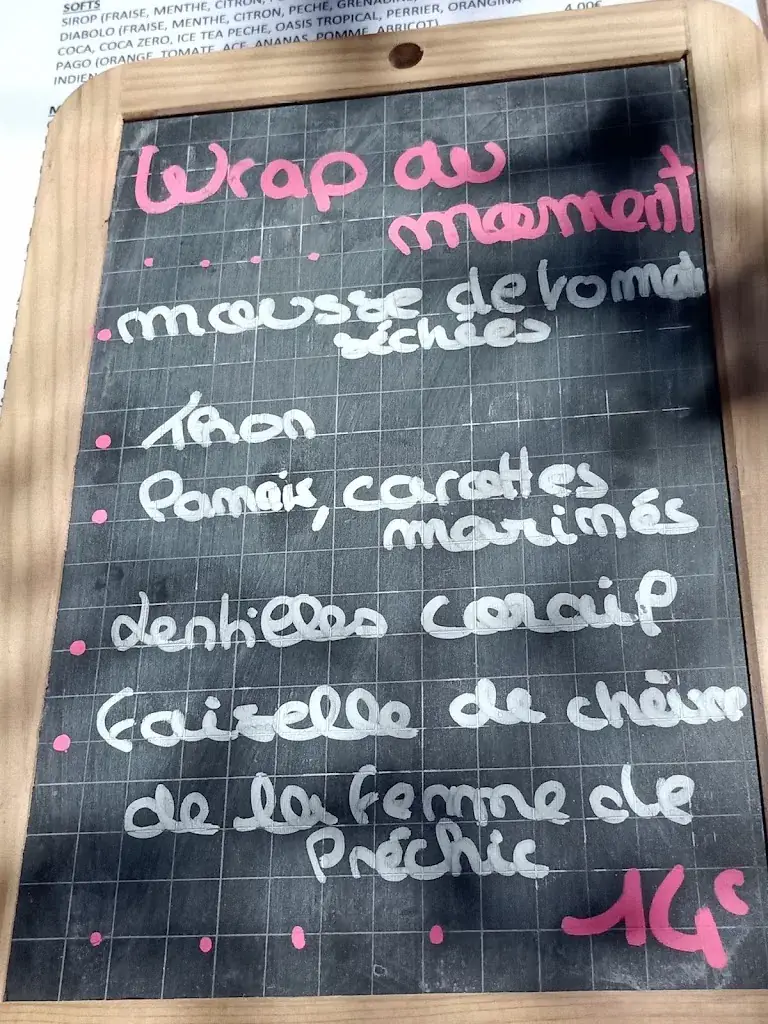 SOFTS
SIROP (FRAISE, MENTHE, CITRON,
DIABOLO (FRAISE, MENTHE, CITRON, PECHE, GRENADINE,
COCA, COCA ZERO, ICE TEA PECHE, OASIS TROPICAL, PERRIER, ORANGINA 4,00€
PAGO (ORANGE, TOMATE, ACE, ANANAS, POMME, ABRICOT)
INDIEN
Wrap du
moment
mousse de tomat
séchées
Thon
Panais, carottes
marinés
Lentilles corail
Faiselle de chèvre
de la Femme de
Préchic
14€